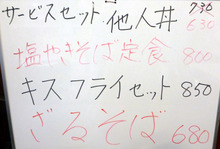 サービスセット 他人丼 730
630
塩やきそば定食 800
キスフライセット 850
ざるそば 680